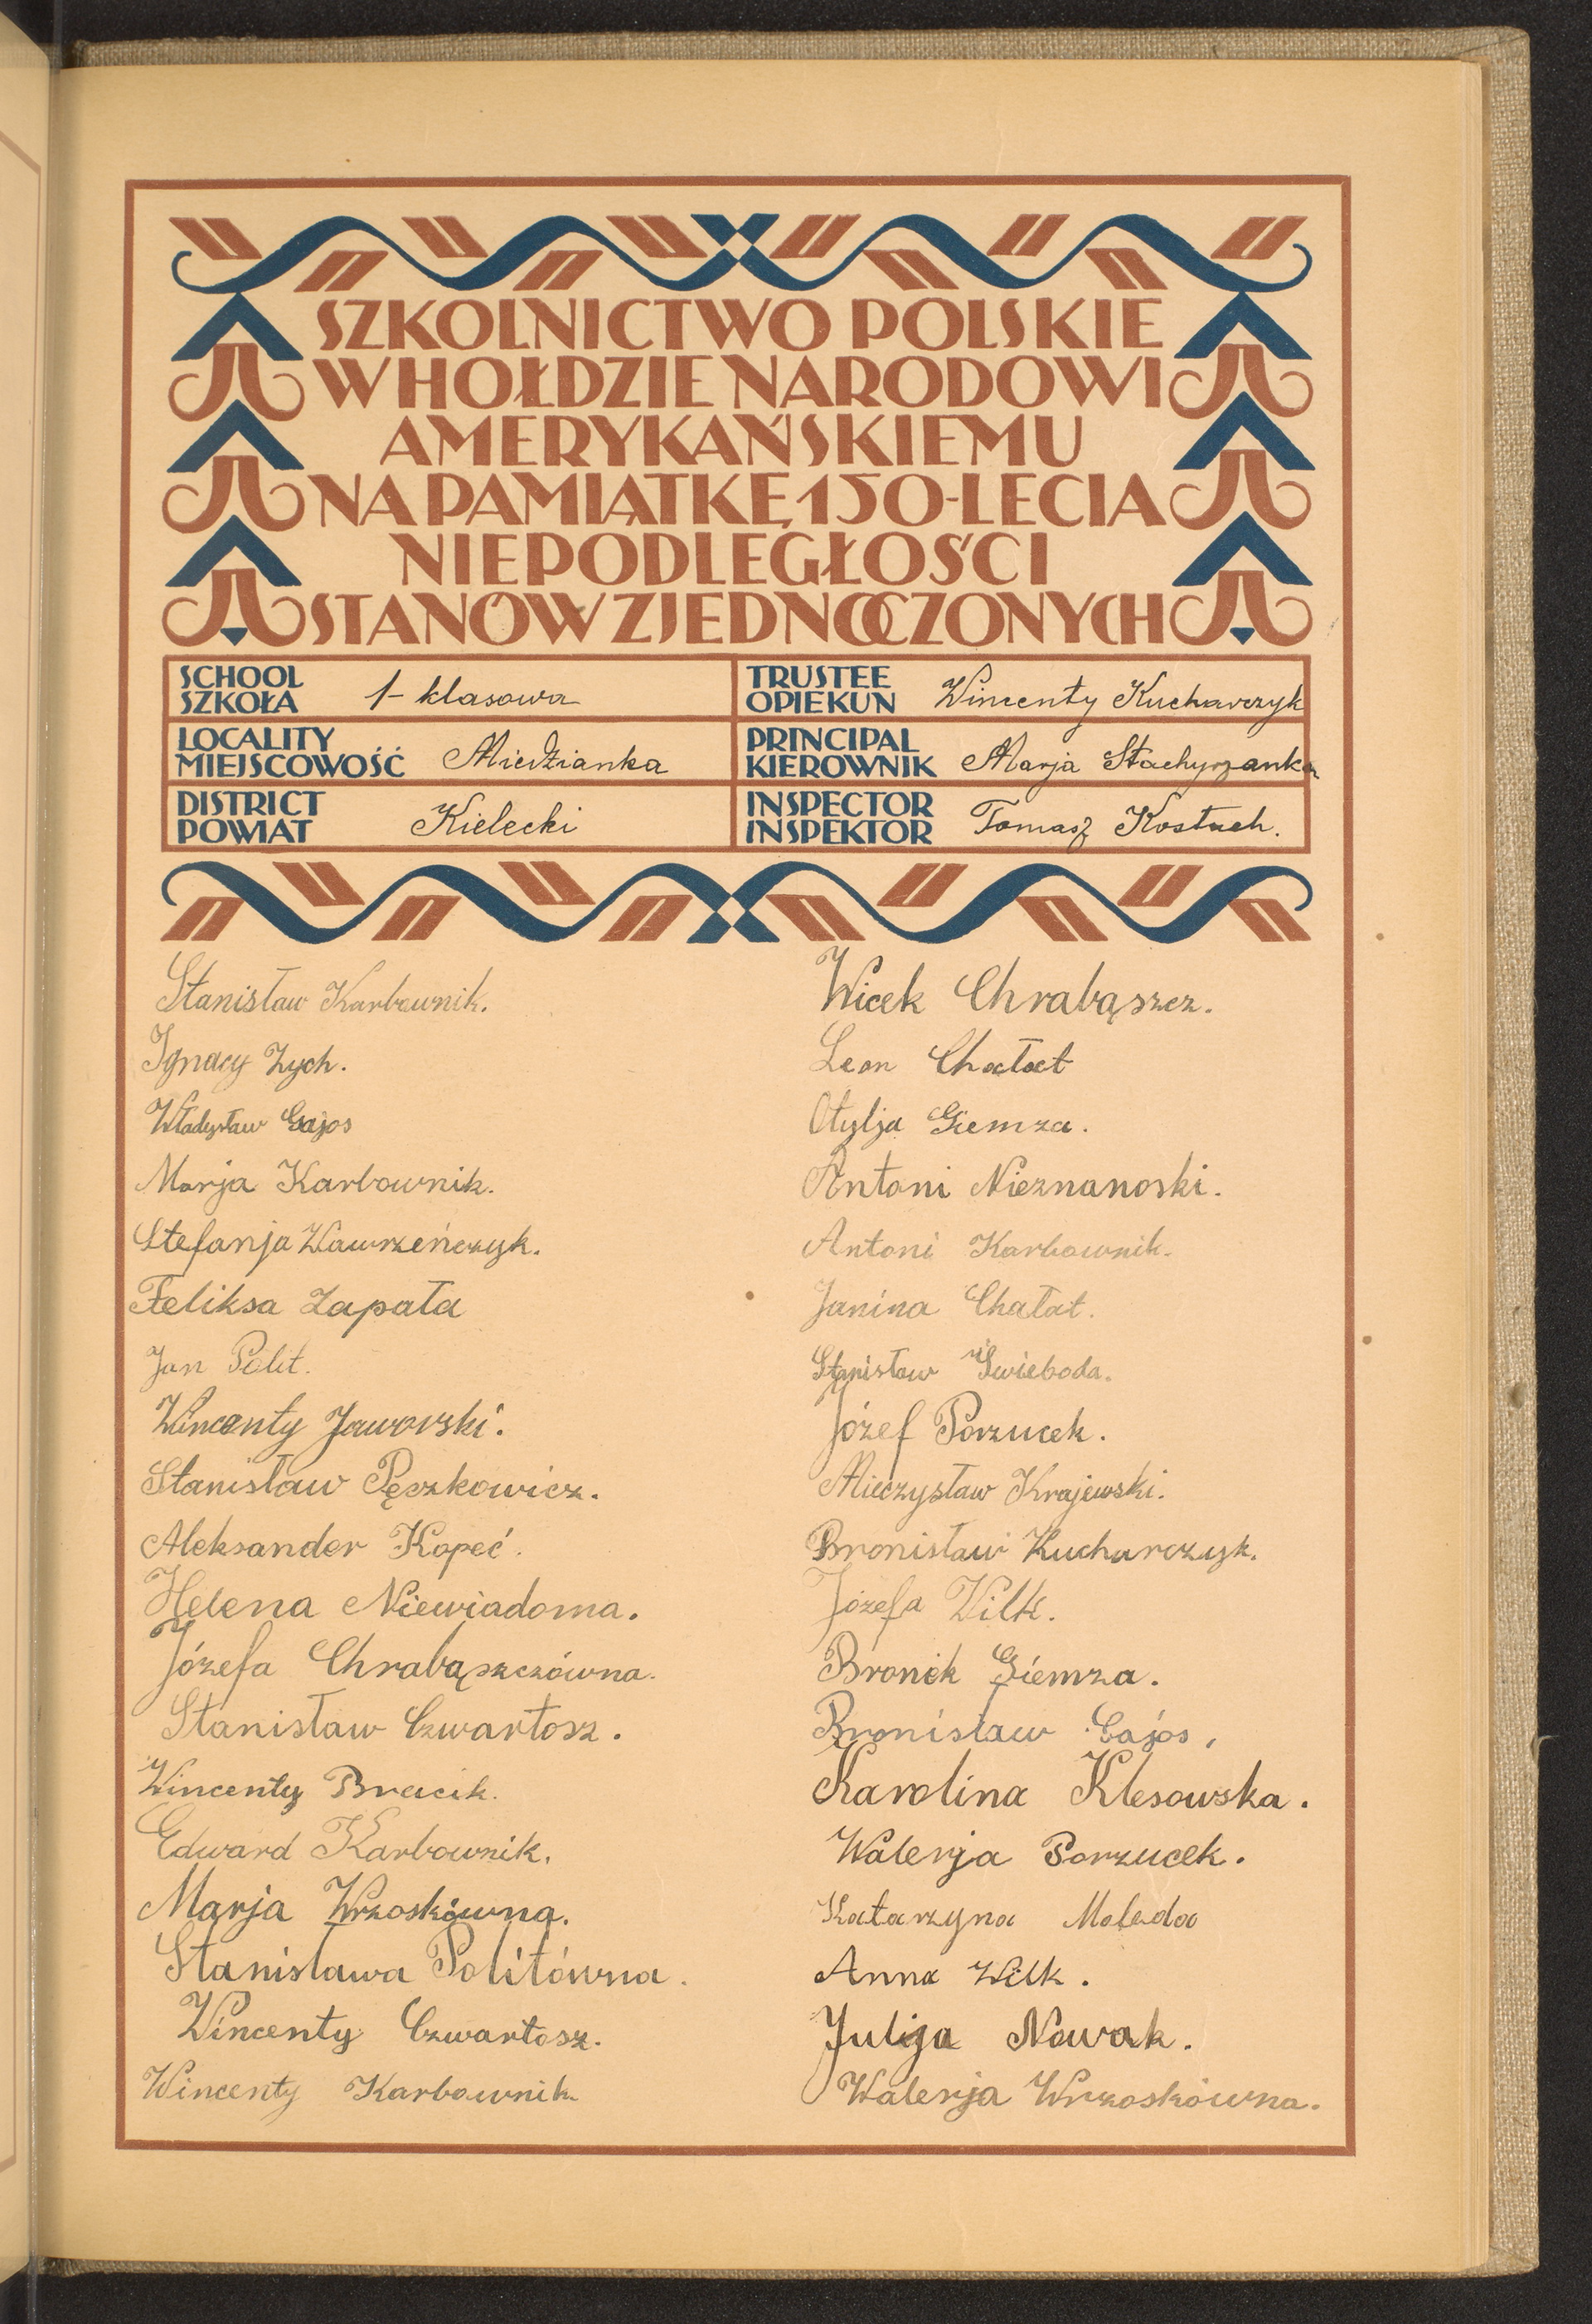 SZKOLNICTWO POLSKIE
W HOŁDZIE NARODOWI
AMERYKAŃSKIEMU
NA PAMIĄTKĘ 150-LECIA
NIEPODLEGŁOŚCI
STANÓW ZJEDNOCZONYCH
SCHOOL
SZKOŁA
1-klasowa
TRUSTEE
OPIEKUN
Wincenty Kucharczyk
LOCALITY
MIEJSCOWOŚĆ
Miedzianka
PRINCIPAL
KIEROWNIK
Marja Stachyrzanka
DISTRICT
POWIAT
Kielecki
INSPECTOR
INSPEKTOR
Tomasz Kostuch.
Stanisław Karbownik.
Ignacy Zych.
Władysław Gajos
Marja Karbownik.
Stefanja Wawrzeńczyk.
Feliksa Zapała
Jan Polit.
Wincenty Jaworski.
Stanisław Pęczkowicz.
Aleksander Kopeć.
Helena Niewiadoma.
Józefa Chrabąszczówna.
Stanisław Czwartosz.
Wincenty Bracik.
Edward Karbownik.
Marja Wrzoskówna.
Stanisława Politówna.
Wincenty Czwartosz.
Wincenty Karbownik
Wicek Chrabąszcz.
Leon Chałat
Otylja Giemza.
Antoni Nieznanoski.
Antoni Karbownik.
Janina Chałat.
Stanisław Świeboda.
Józef Porzucek.
Mieczysław Krajewski.
Bronisław Kucharczyk.
Józefa Wilk.
Bronek Giemza.
Bronisław Gajos,
Karolina Klesowska.
Walerja Porzucek.
Katarzyna Maleda
Anna Wilk.
Julija Nowak.
Walerja Wrzoskówna.